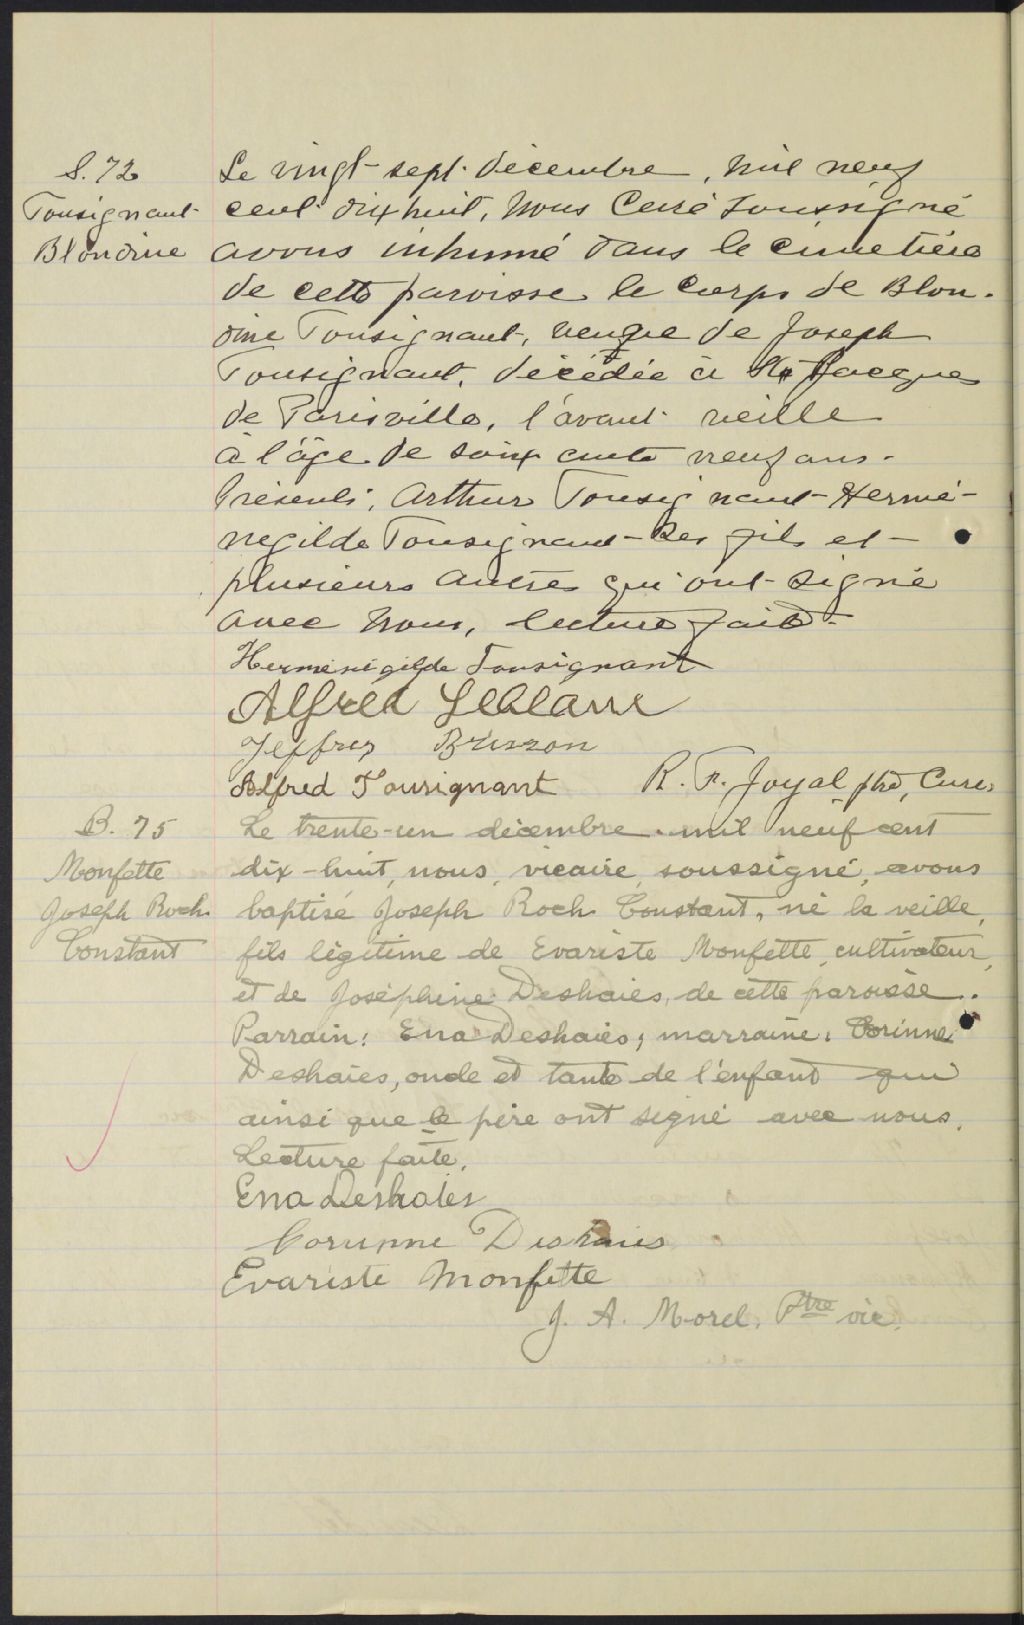 S. 72
Tousignant
Blondine
Le vingt-sept décembre, mil neuf
cent dix huit, Nous Curé soussigné
avons inhumé dans le cimetière
de cette paroisse le corps de Blon-
dine Tousignant, veuve de Joseph
Tousignant, décédée à St Jacques
de Parisville, l'avant veille
à l'âge de soixante neuf ans.
Présents, Arthur Tousignant Hermé-
negilde Tousignant ses fils et
plusieurs autres qui ont signé
avec nous, lecture faite.
Herménégilde Tousignant
Alfred Leblanc
Jeffrey Brisson
Alfred Tousignant
R. F. Joyal ptre, Curé
B. 75
Monfette
Joseph Roch
Constant
Le trente-un décembre mil neuf cent
dix-huit, nous, vicaire soussigné, avons
baptisé Joseph Roch Constant, né la veille,
fils légitime de Evariste Monfette, cultivateur,
et de Joséphine Deshaies, de cette paroisse.
Parrain: Ena Deshaies; marraine: Corinne
Deshaies, oncle et tante de l'enfant qui
ainsi que le père ont signé avec nous.
Lecture faite.
Ena Deshaies
Corinne Deshaies
Evariste Monfette
J. A. Morel, Ptre vic.